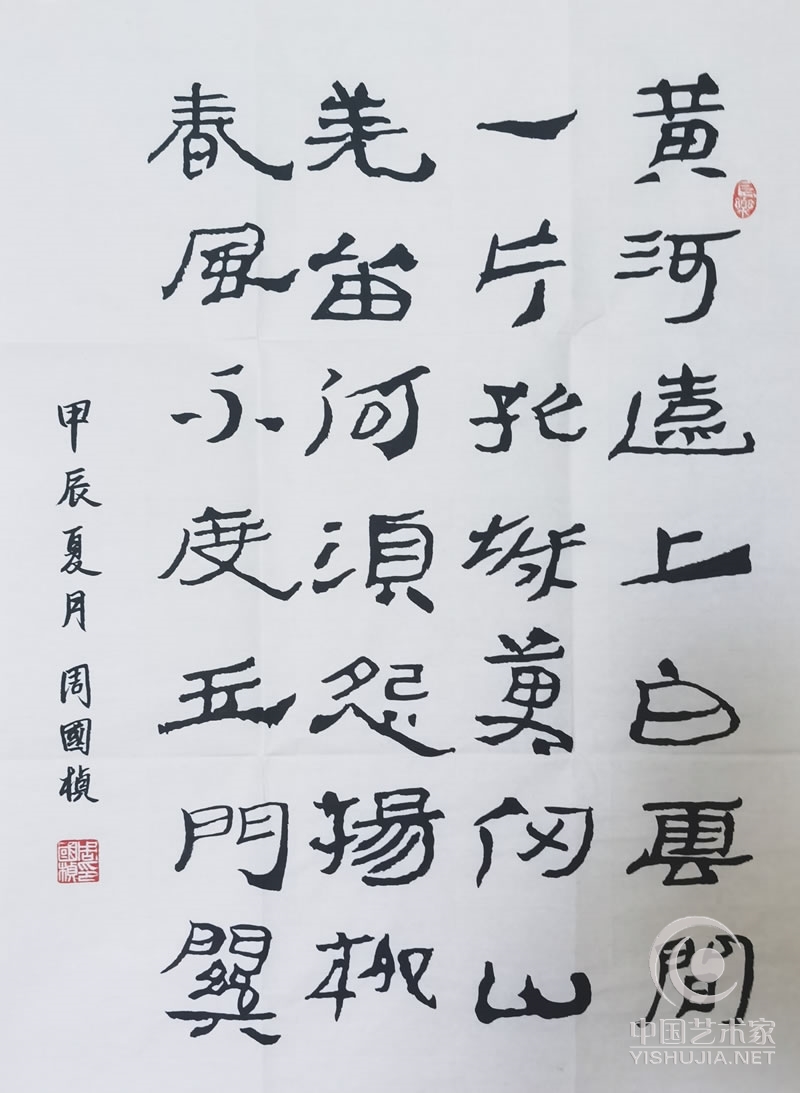 黃河遠上白雲間
一片孤城萬仞山
羌笛何須怨揚柳
春風不度玉門關
甲辰夏月 周國楨
長樂
周國楨印
中国艺术家
YISHUJIA.NET